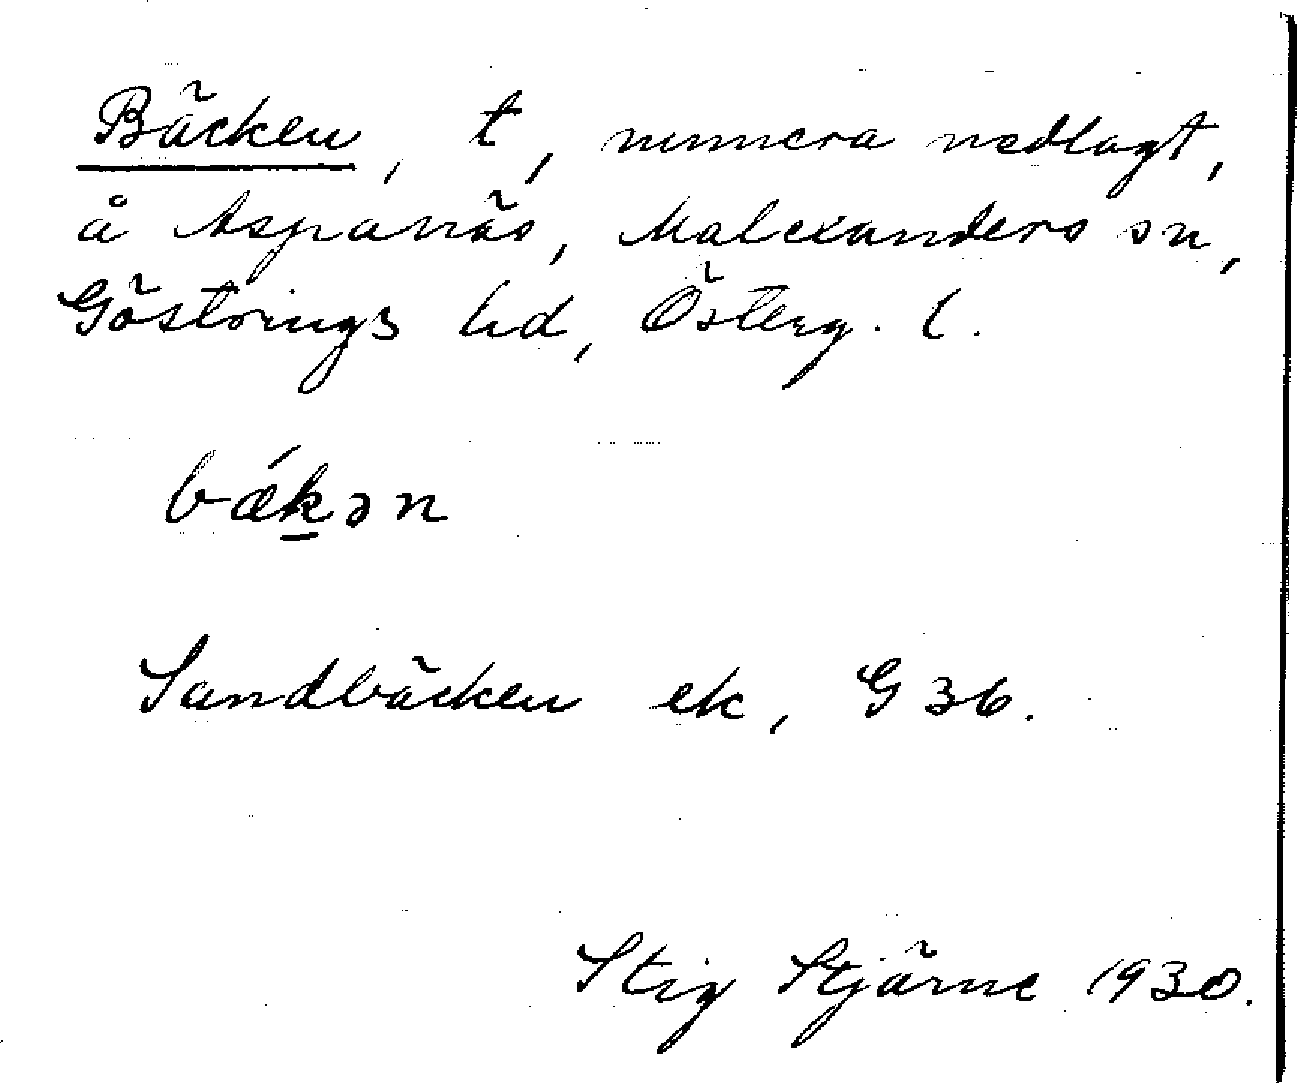 Bäcken, t, numera nedlagt,
å Aspanäs, Malexanders sn,
Göstrings hd, Österg. l.
bǽk̲ən
Sandbäcken ek, G 36.
Stig Stjärne 1930.